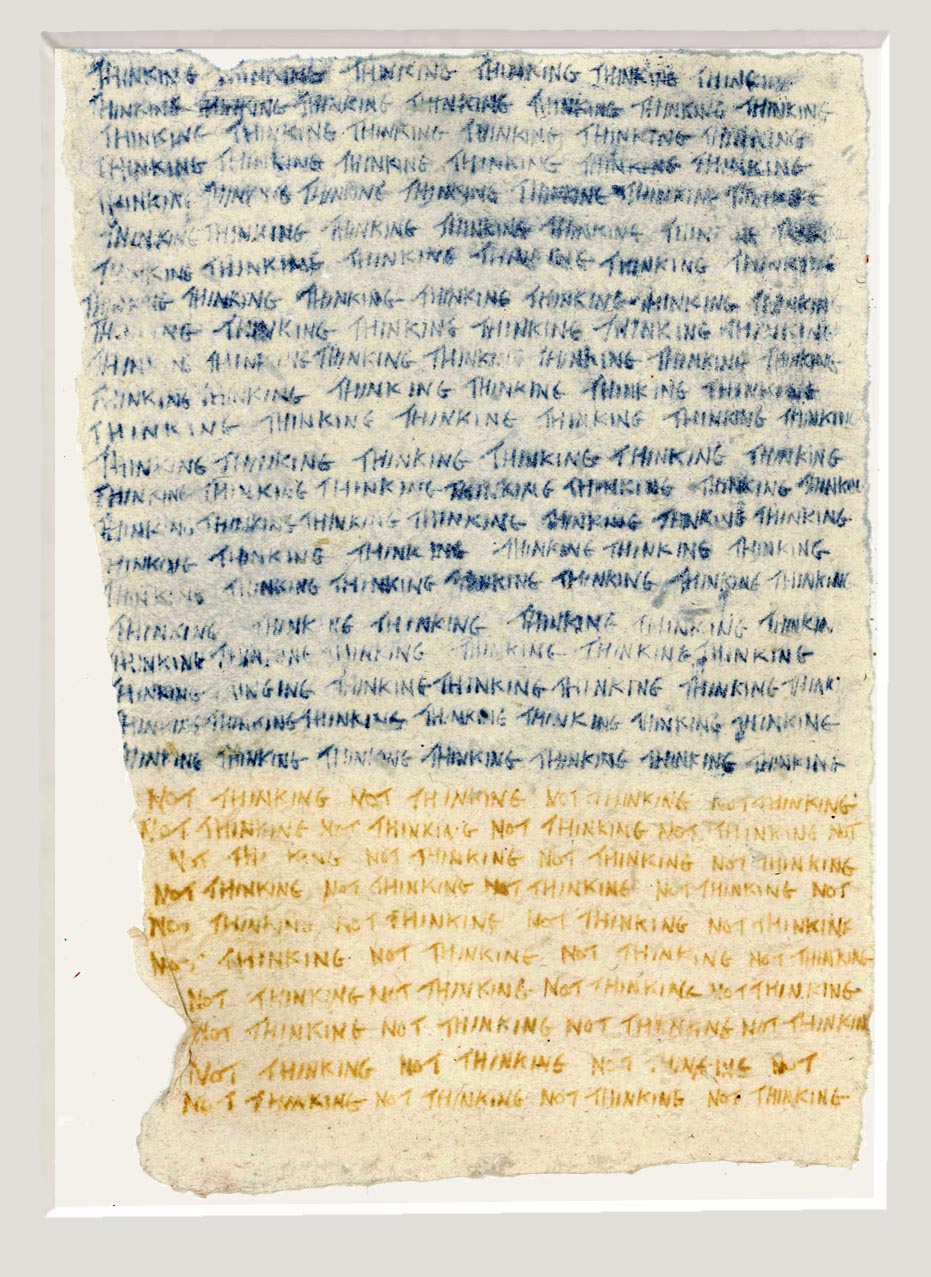 THINKING THINKING THINKING THINKING THINKING THINKING
THINKING THINKING THINKING THINKING THINKING THINKING THINKING
THINKING THINKING THINKING THINKING THINKING THINKING
THINKING THINKING THINKING THINKING THINKING THINKING
THINKING THINKING THINKING THINKING THINKING THINKING THINKING
THINKING THINKING THINKING THINKING THINKING THINKING
THINKING THINKING THINKING THINKING THINKING THINKING
THINKING THINKING THINKING THINKING THINKING THINKING THINKING
THINKING THINKING THINKING THINKING THINKING
THINKING THINKING THINKING THINKING THINKING THINKING THINKING
THINKING THINKING THINKING THINKING THINKING THINKING
THINKING THINKING THINKING THINKING THINKING THINKING
THINKING THINKING THINKING THINKING THINKING THINKING
THINKING THINKING THINKING THINKING THINKING THINKING THINKING
THINKING THINKING THINKING THINKING THINKING THINKING THINKING
THINKING THINKING THINKING THINKING THINKING THINKING
THINKING THINKING THINKING THINKING THINKING THINKING THINKING
THINKING THINKING THINKING THINKING THINKING THINKIN
THINKING THINKING THINKING THINKING THINKING THINKING
THINKING THINKING THINKING THINKING THINKING THINK
THINKING THINKING THINKING THINKING THINKING THINKING THINKING
THINKING THINKING THINKING THINKING THINKING THINKING THINKING
NOT THINKING NOT THINKING NOT THINKING NOT THINKING
NOT THINKING NOT THINKING NOT THINKING NOT THINKING NOT
NOT THINKING NOT THINKING NOT THINKING NOT THINKING
NOT THINKING NOT THINKING NOT THINKING NOT THINKING NOT
NOT THINKING NOT THINKING NOT THINKING NOT THINKING
NOT THINKING NOT THINKING NOT THINKING NOT THINKING
NOT THINKING NOT THINKING NOT THINKING NOT THINKING
NOT THINKING NOT THINKING NOT THINKING NOT THINKIN
NOT THINKING NOT THINKING NOT NOT
NOT THINKING NOT THINKING NOT THINKING NOT THINKING